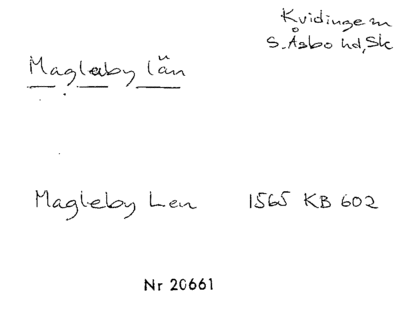 Kvidinge sn
S. Åsbo hd, Sk
Magleby län
Magleby Len 1565 KB 602
Nr 20661